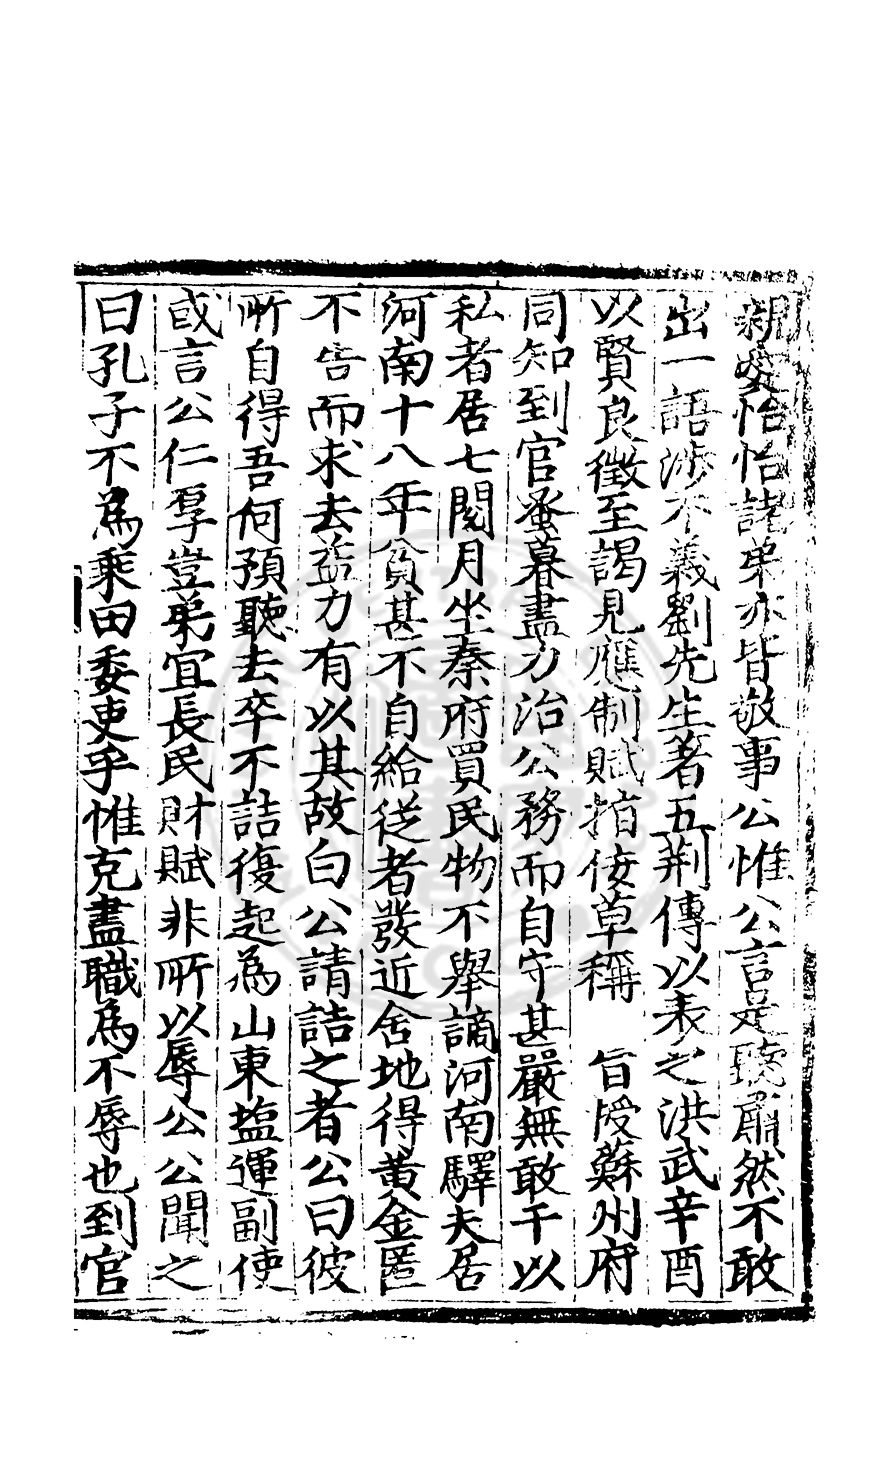 親愛怡怡諸弟亦皆敬事公惟公言是聽肅然不敢
出一語涉不義劉先生著五荆傳以表之洪武辛酉
以賢良徵至謁見應制賦指佞草稱 旨授蘇州府
同知到官蚤暮盡力治公務而自守甚嚴無敢干以
私者居七閱月坐秦府買民物不舉謫河南驛夫居
河南十八年貧甚不自給從者發近舍地得黃金匿
不告而求去益力有以其故白公請詰之者公曰彼
所自得吾何預聽去卒不詰復起為山東塩運副使
或言公仁厚豈弟宜長民財賦非所以辱公公聞之
曰孔子不為乘田委吏乎惟克盡職為不辱也到官